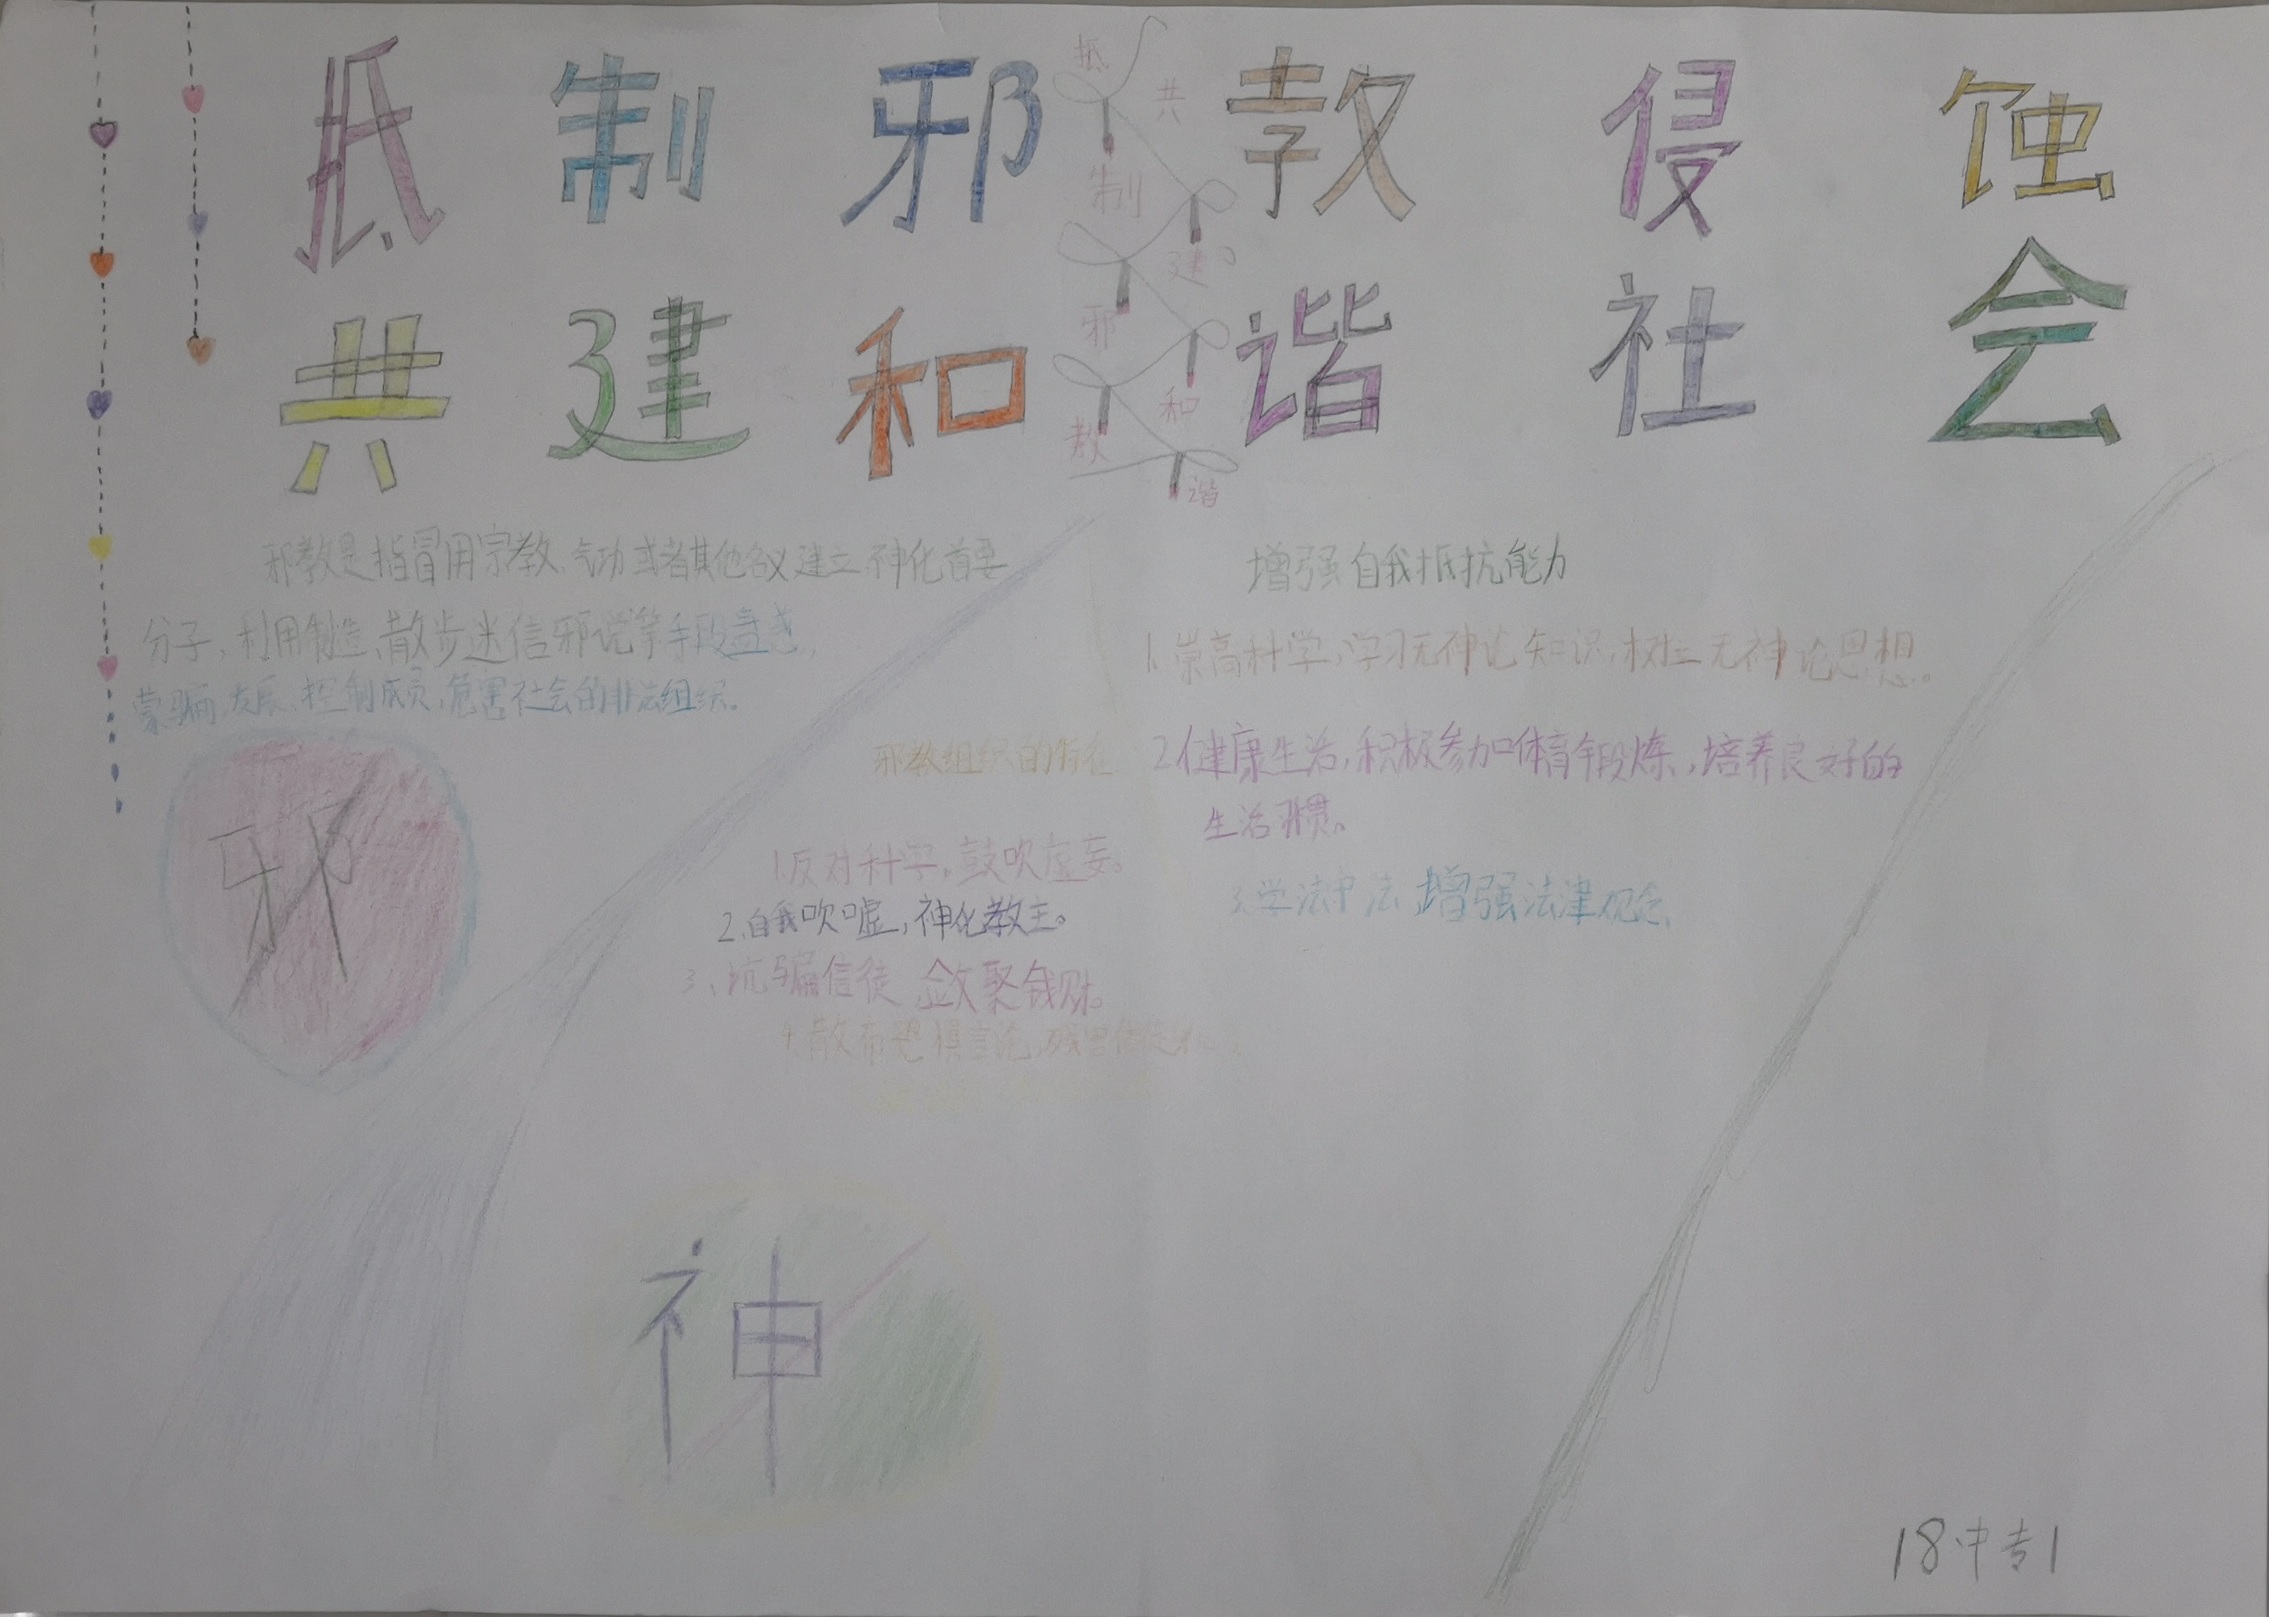 抵制邪教侵蚀
共建和谐社会
抵
共
制
建
邪
和
教
谐
邪教是指冒用宗教、气功或者其他名义建立、神化首要
分子,利用制造、散步迷信邪说等手段蛊惑,
蒙骗,发展、控制成员,危害社会的非法组织。
邪教组织的特征
1.反对科学,鼓吹虚妄。
2.自我吹嘘,神化教主。
3、坑骗信徒 敛聚钱财。
4.散布恐惧言论,残害信徒
增强自我抵抗能力
1.崇高科学,学习无神论知识,树立无神论思想。
2.健康生活,积极参加体育锻炼,培养良好的
生活习惯。
3.学法 法,增强法律观念
邪
神
18中专1